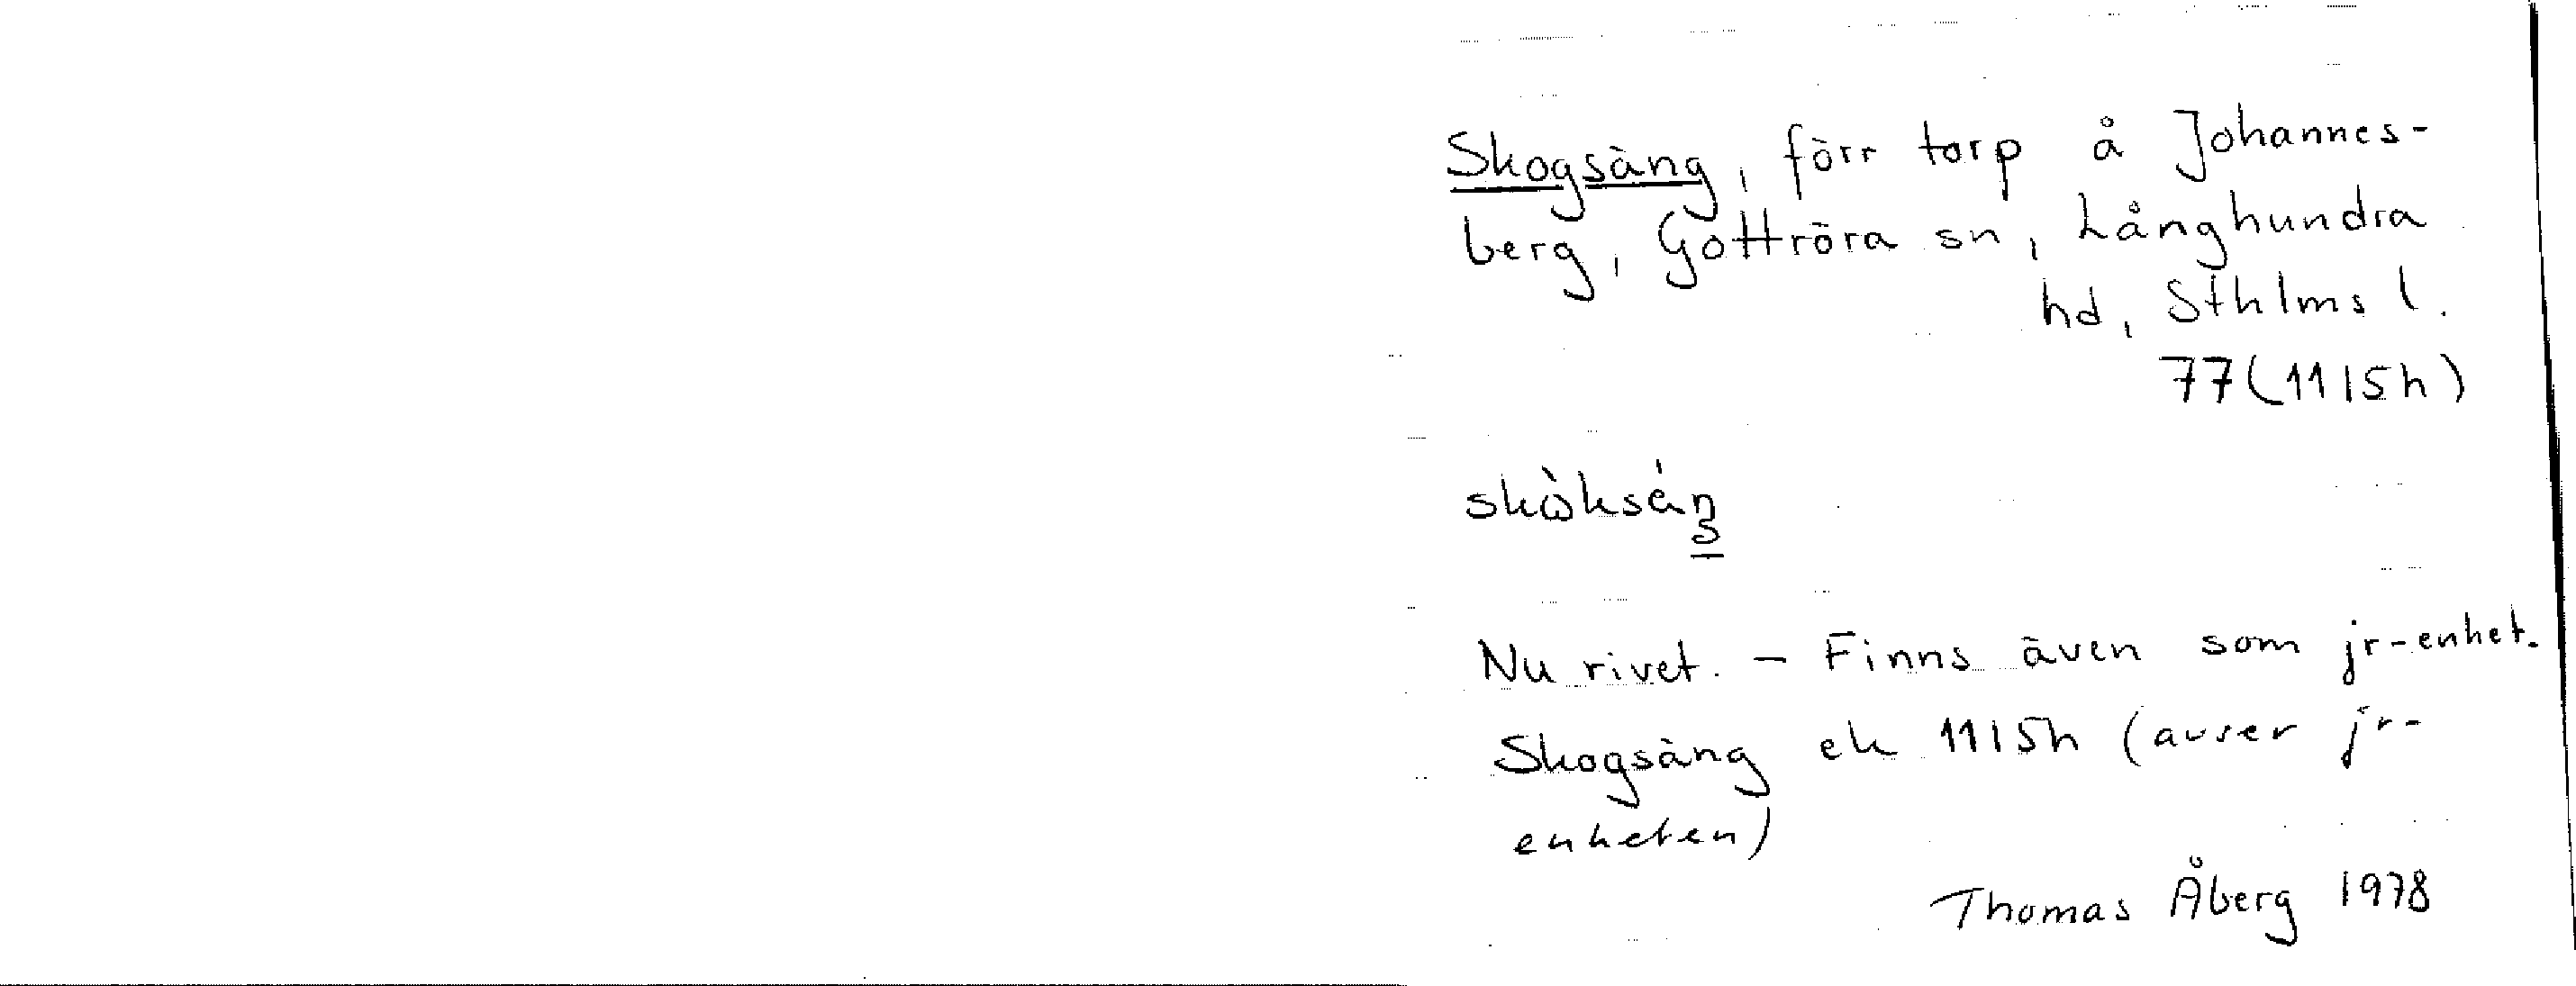 Skogsäng, förr torp å Johannes-
berg, Gottröra sn, Långhundra
hd, Sthlms l.
77(11I5h)
skὼkséŋ
Nu rivet. – Finns även som jr-enhet.
Skogsäng ek 11I5h (avser jr-
enheten)
Thomas Åberg 1978